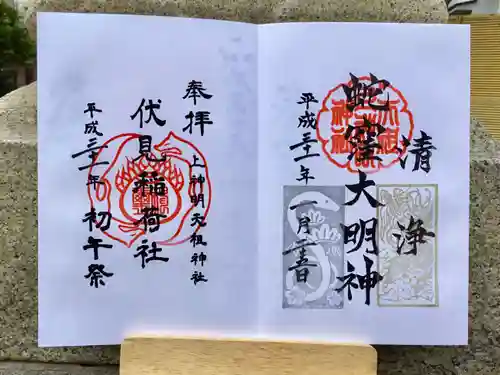 清浄
蛇窪大明神
平成三十一年
一月
奉拝
上神明天祖神社
伏見稲荷社
平成三十一年
初午祭